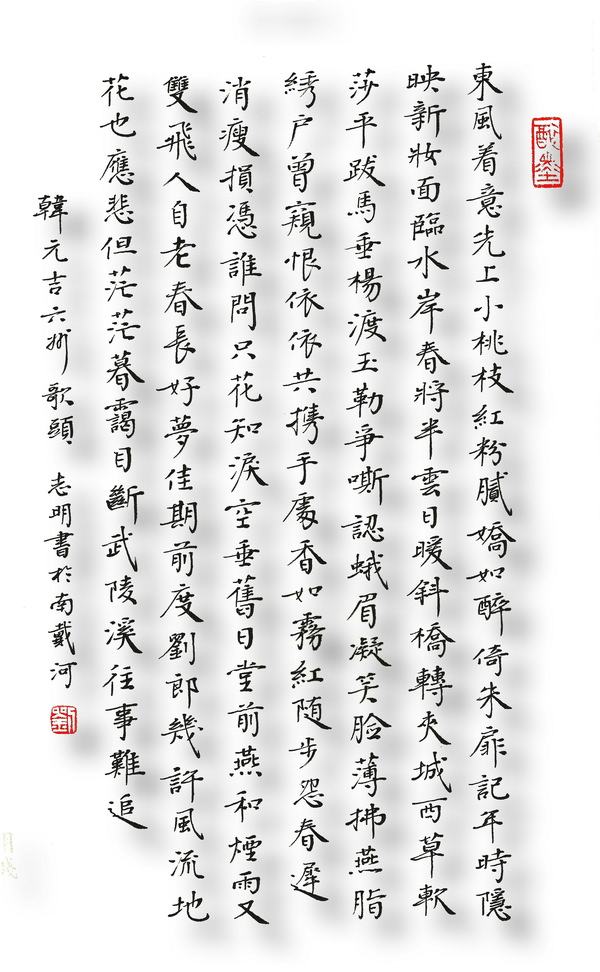 東風着意先上小桃枝紅粉膩嬌如醉倚朱扉記年時隱
映新妝面臨水岸春將半雲日暖斜橋轉夾城西草軟
莎平跋馬垂楊渡玉勒爭嘶認蛾眉凝笑臉薄拂燕脂
綉户曾窺恨依依共携手處香如霧紅随步怨春遲
消瘦損憑誰問只花知淚空垂舊日堂前燕和煙雨又
雙飛人自老春長好夢佳期前度劉郎幾許風流地
花也應悲但茫茫暮靄目斷武陵溪往事難追
韓元吉六州歌頭 志明書於南戴河
劉